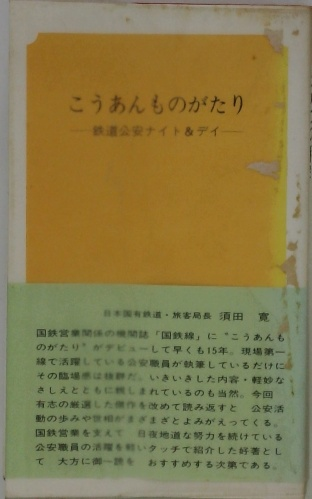 こうあんものがたり
―鉄道公安ナイト&デイ―
日本国有鉄道・旅客局長 須田 寛
国鉄営業関係の機関誌「国鉄線」に“こうあんも
のがたり”がデビューして早くも15年。現場第一
線で活躍している公安職員が執筆しているだけに
その臨場感は抜群だ。いきいきした内容・軽妙な
さしえとともに親しまれているのも当然。今回
有志の厳選した傑作を改めて読み返すと 公安活
動の歩みや世相がまざまざとよみがえってくる。
国鉄営業を支えて 日夜地道な努力を続けている
公安職員の活躍を軽いタッチで紹介した好著とし
て 大方に御一読を おすすめする次第である。